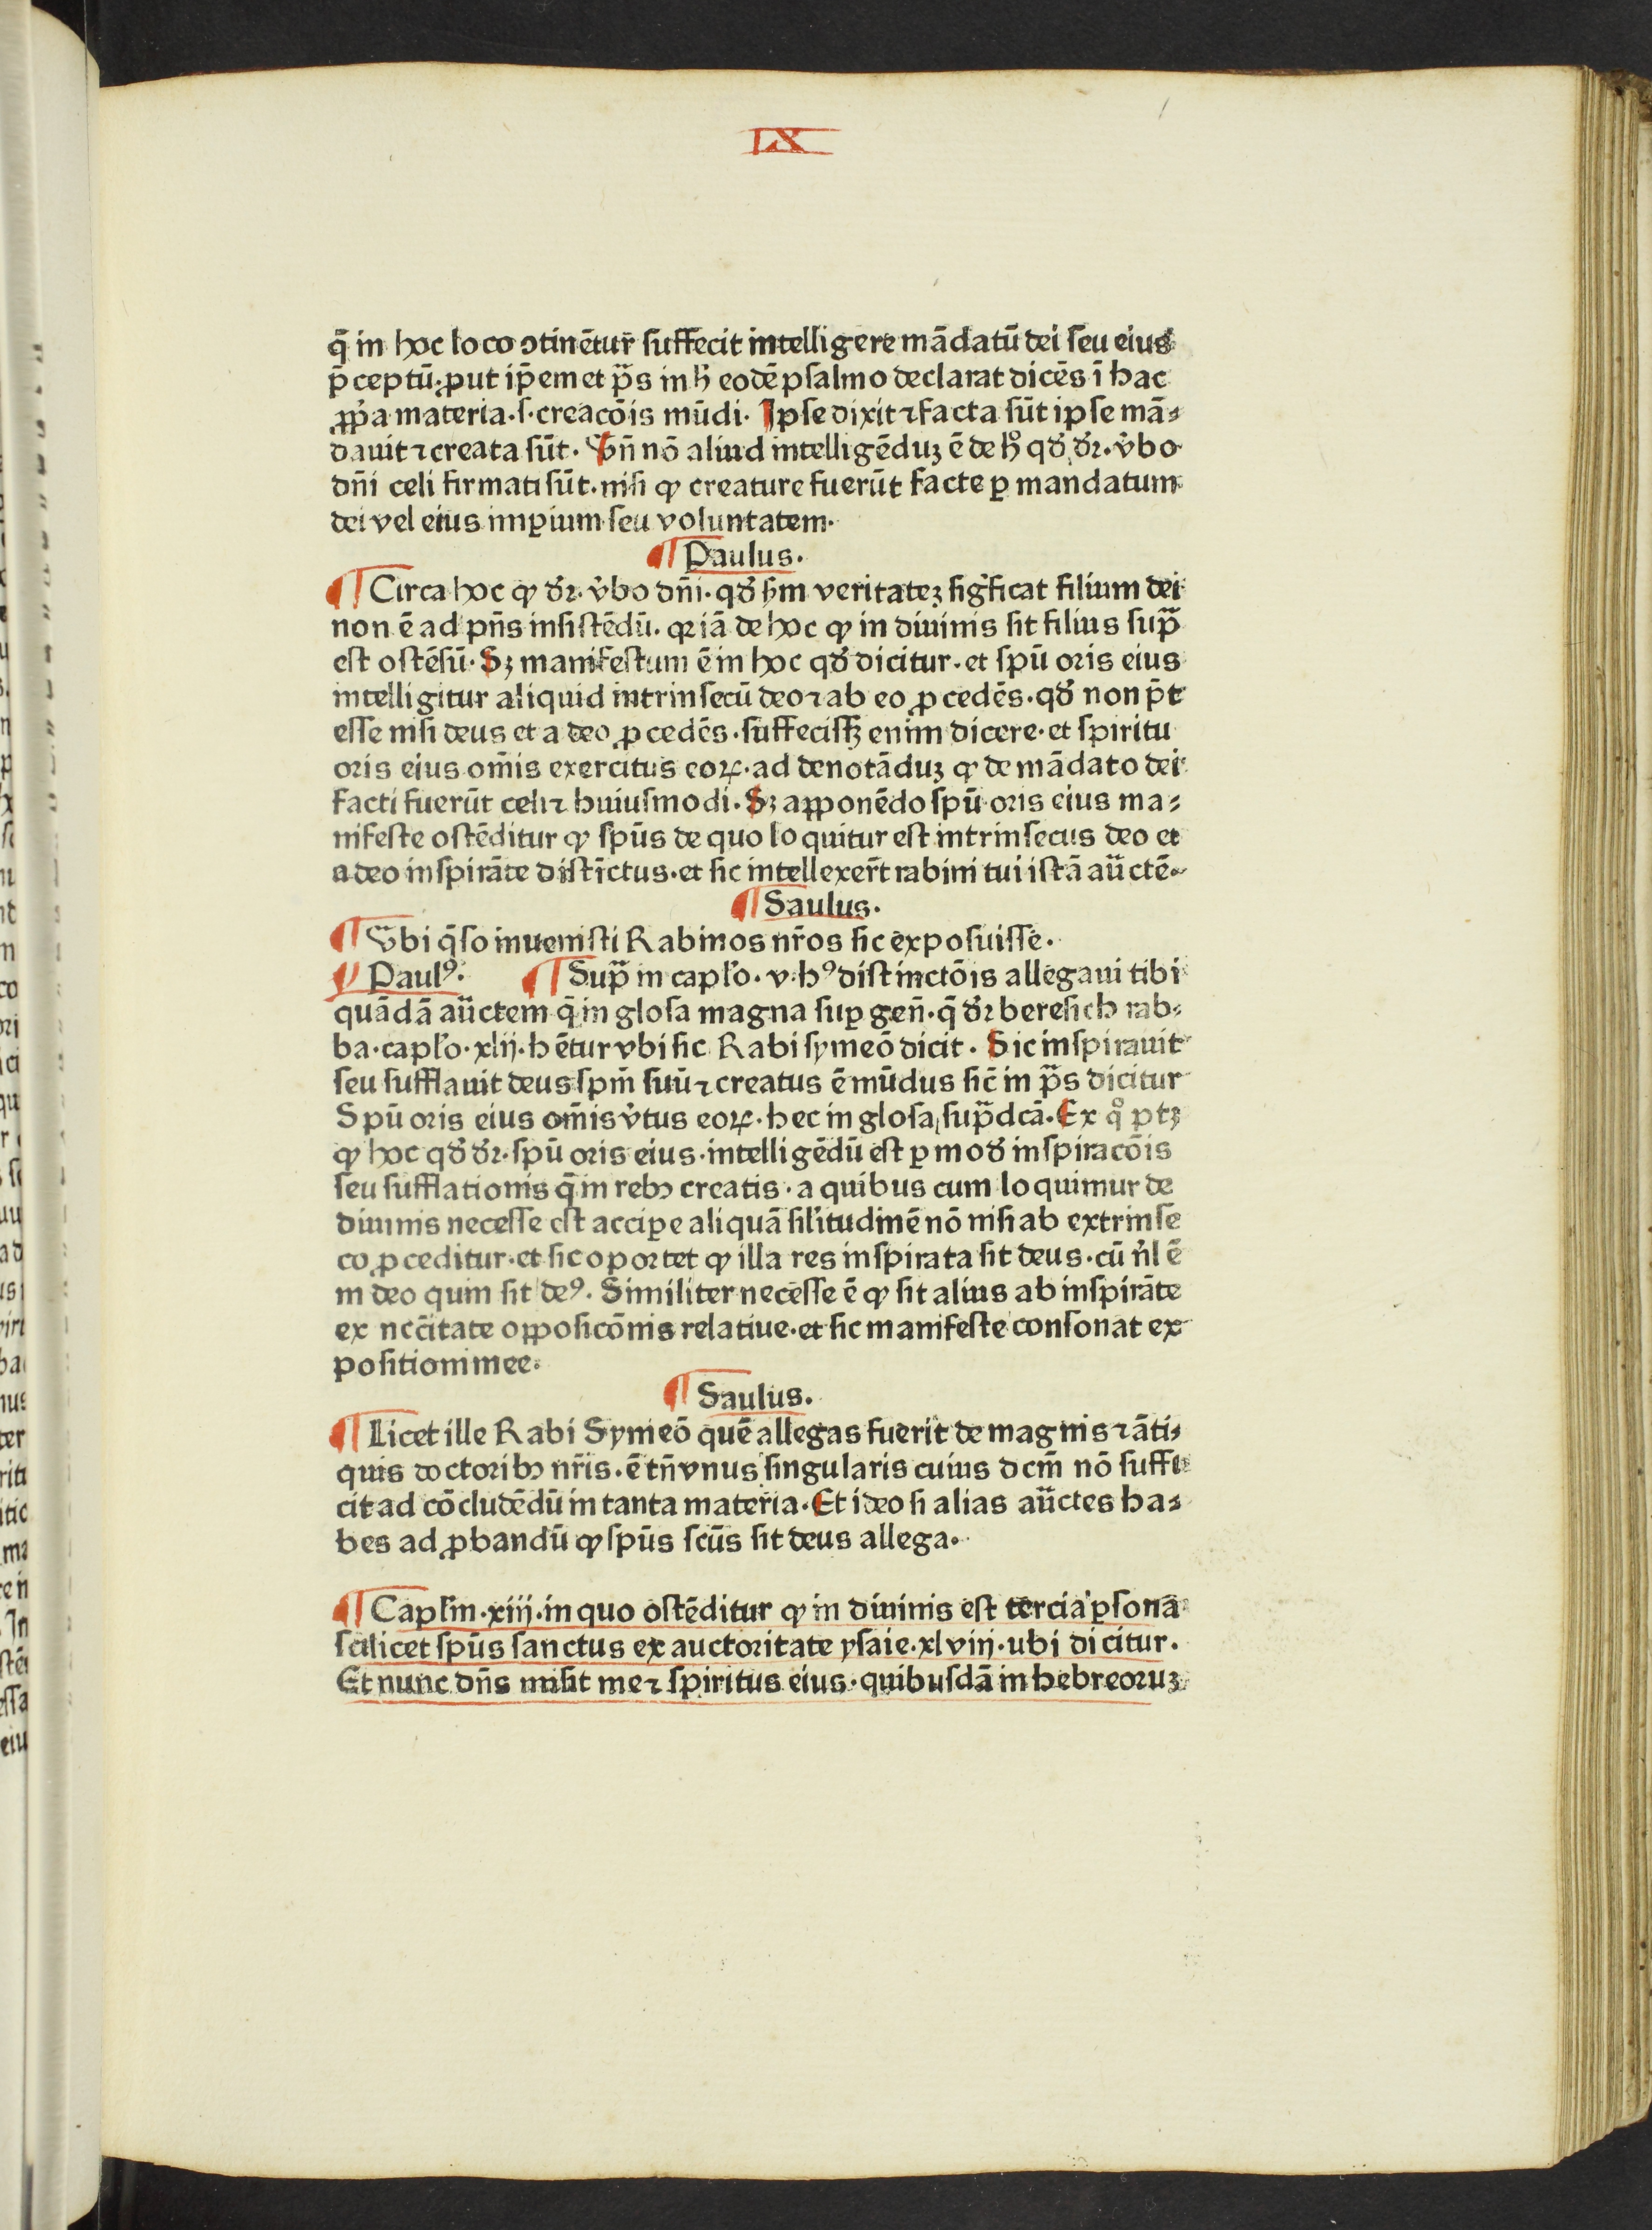 IX
q̄ in hoc loco ↄtinētur̄ suffecit intelligere mādatū dei seu eius
p̄ceptū· ꝓut ip̄emet p̄s in ḣ eodē psalmo declarat dicēs ī hac
ꝓṗa materia·s·creacōis mūdi· Ipse dixit ⁊ facta sūt ipse mā⸗
dauit ⁊ creata sūt· Vn̄ nō aliud intelligēduꝫ ē de hͦ qđ dr̄· v̓bo
dn̄i celi firmati sūt·nisi ꝙ creature fuerūt facte ꝑ mandatum
dei vel eius imꝑium seu voluntatem·
¶ Paulus·
¶ Circa hoc ꝙ dr̄· v̓bo dn̄i·qđ ẜm veritateꝫ sig̓ficat filium dei
non ē ad pn̄s insistēdū· qꝛ iā de hoc ꝙ in diuinis sit filius sup̄
est ostēsū· Sꝫ manifestum ē in hoc qđ dicitur·et spū oris eius
intelligitur aliquid intrinsecū deo ⁊ ab eo ꝓcedēs·qđ non p̄t
esse nisi deus et a deo ꝓcedēs·suffecissꝫ enim dicere·et spiritu
oris eius om̄is exercitus eoꝝ·ad denotāduꝫ ꝙ de mādato dei
facti fuerūt celi ⁊ huiusmodi· Sꝫ apponēdo spū oris eius ma⸗
nifeste ostēditur ꝙ spūs de quo loquitur est intrinsecus deo et
a deo inspirāte distīctus·et sic intellexer̄t rabini tui istā au̅ctē·
¶ Saulus·
¶ Vbi q̄so inuenisti Rabinos nr̄os sic exposuisse·
¶ Paulꝰ· ¶ Sup̄ in capl̓o·v·hꝰ distinctōis allegaui tibi
quādā au̅ctem q̄ in glosa magna suꝑ gen̄·q̄ dr̄ beresich rab⸗
ba·capl̓o·xlij·hētur vbi sic Rabi symeō dicit· Sic inspirauit
seu sufflauit deus spm̄ suū ⁊ creatus ē mūdus sic̄ in p̄s dicitur
Spū oris eius om̄is v̓tus eoꝝ·hec in glosa sup̄dcā· Ex qͦ ptꝫ
ꝙ hoc qđ dr̄·spū oris eius·intelligēdū est ꝑ mođ inspiracōis
seu sufflationis q̄ in rebꝫ creatis·a quibus cum loquimur de
diuinis necesse est acciꝑe aliquā sil̓itudinē nō nisi ab extrinse
co ꝓceditur·et sic oportet ꝙ illa res inspirata sit deus·cū n̓l ē
in deo quin sit deꝰ· Similiter necesse ē ꝙ sit alius ab inspirāte
ex nc̄citate opposicōnis relatiue·et sic manifeste consonat ex
positioni mee·
¶ Saulus·
¶ Licet ille Rabi Symeō quē allegas fuerit de magnis ⁊ āti⸗
quis doctoribꝫ nr̄is·ē tn̄ vnus singularis cuius dcm̄ nō suffi
cit ad cōcludēdū in tanta materia· Et ideo si alias au̅ctes ha⸗
bes ad ꝓbandū ꝙ spūs scūs sit deus allega·
¶ Capl̓m·xiij·in quo ostēditur ꝙ in diuinis est tercia ꝑsona
scilicet spūs sanctus ex auctoritate ysaie·xlviij·ubi dicitur·
Et nunc dn̄s misit me ⁊ spiritus eius·quibusdā in hebreoruꝫ